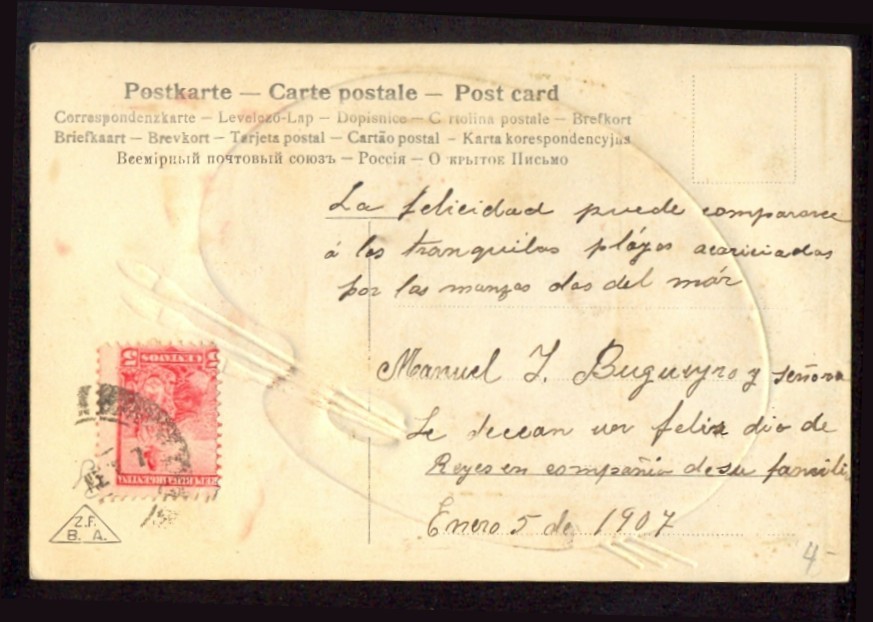 Postkarte — Carte postale — Post card
Correspondenzkarte – Levelező-Lap – Dopisnice – C rtolina postale – Brefkort
Briefkaart – Brevkort – Tarjeta postal – Cartão postal – Karta korespondencyjna
Всемірный почтовый союзъ – Россія – О крытое Письмо
La felicidad puede compararce
á las tranquilas pláyas acariciadas
por las mansas olas del már
Manuel J. y señora
Le decean un feliz dia de
Reyes en compañia de su famili
Enero 5 de 1907
3
CENTAVOS
REPUBLICA ARGENTINA
Z.F.
B. A.
4-